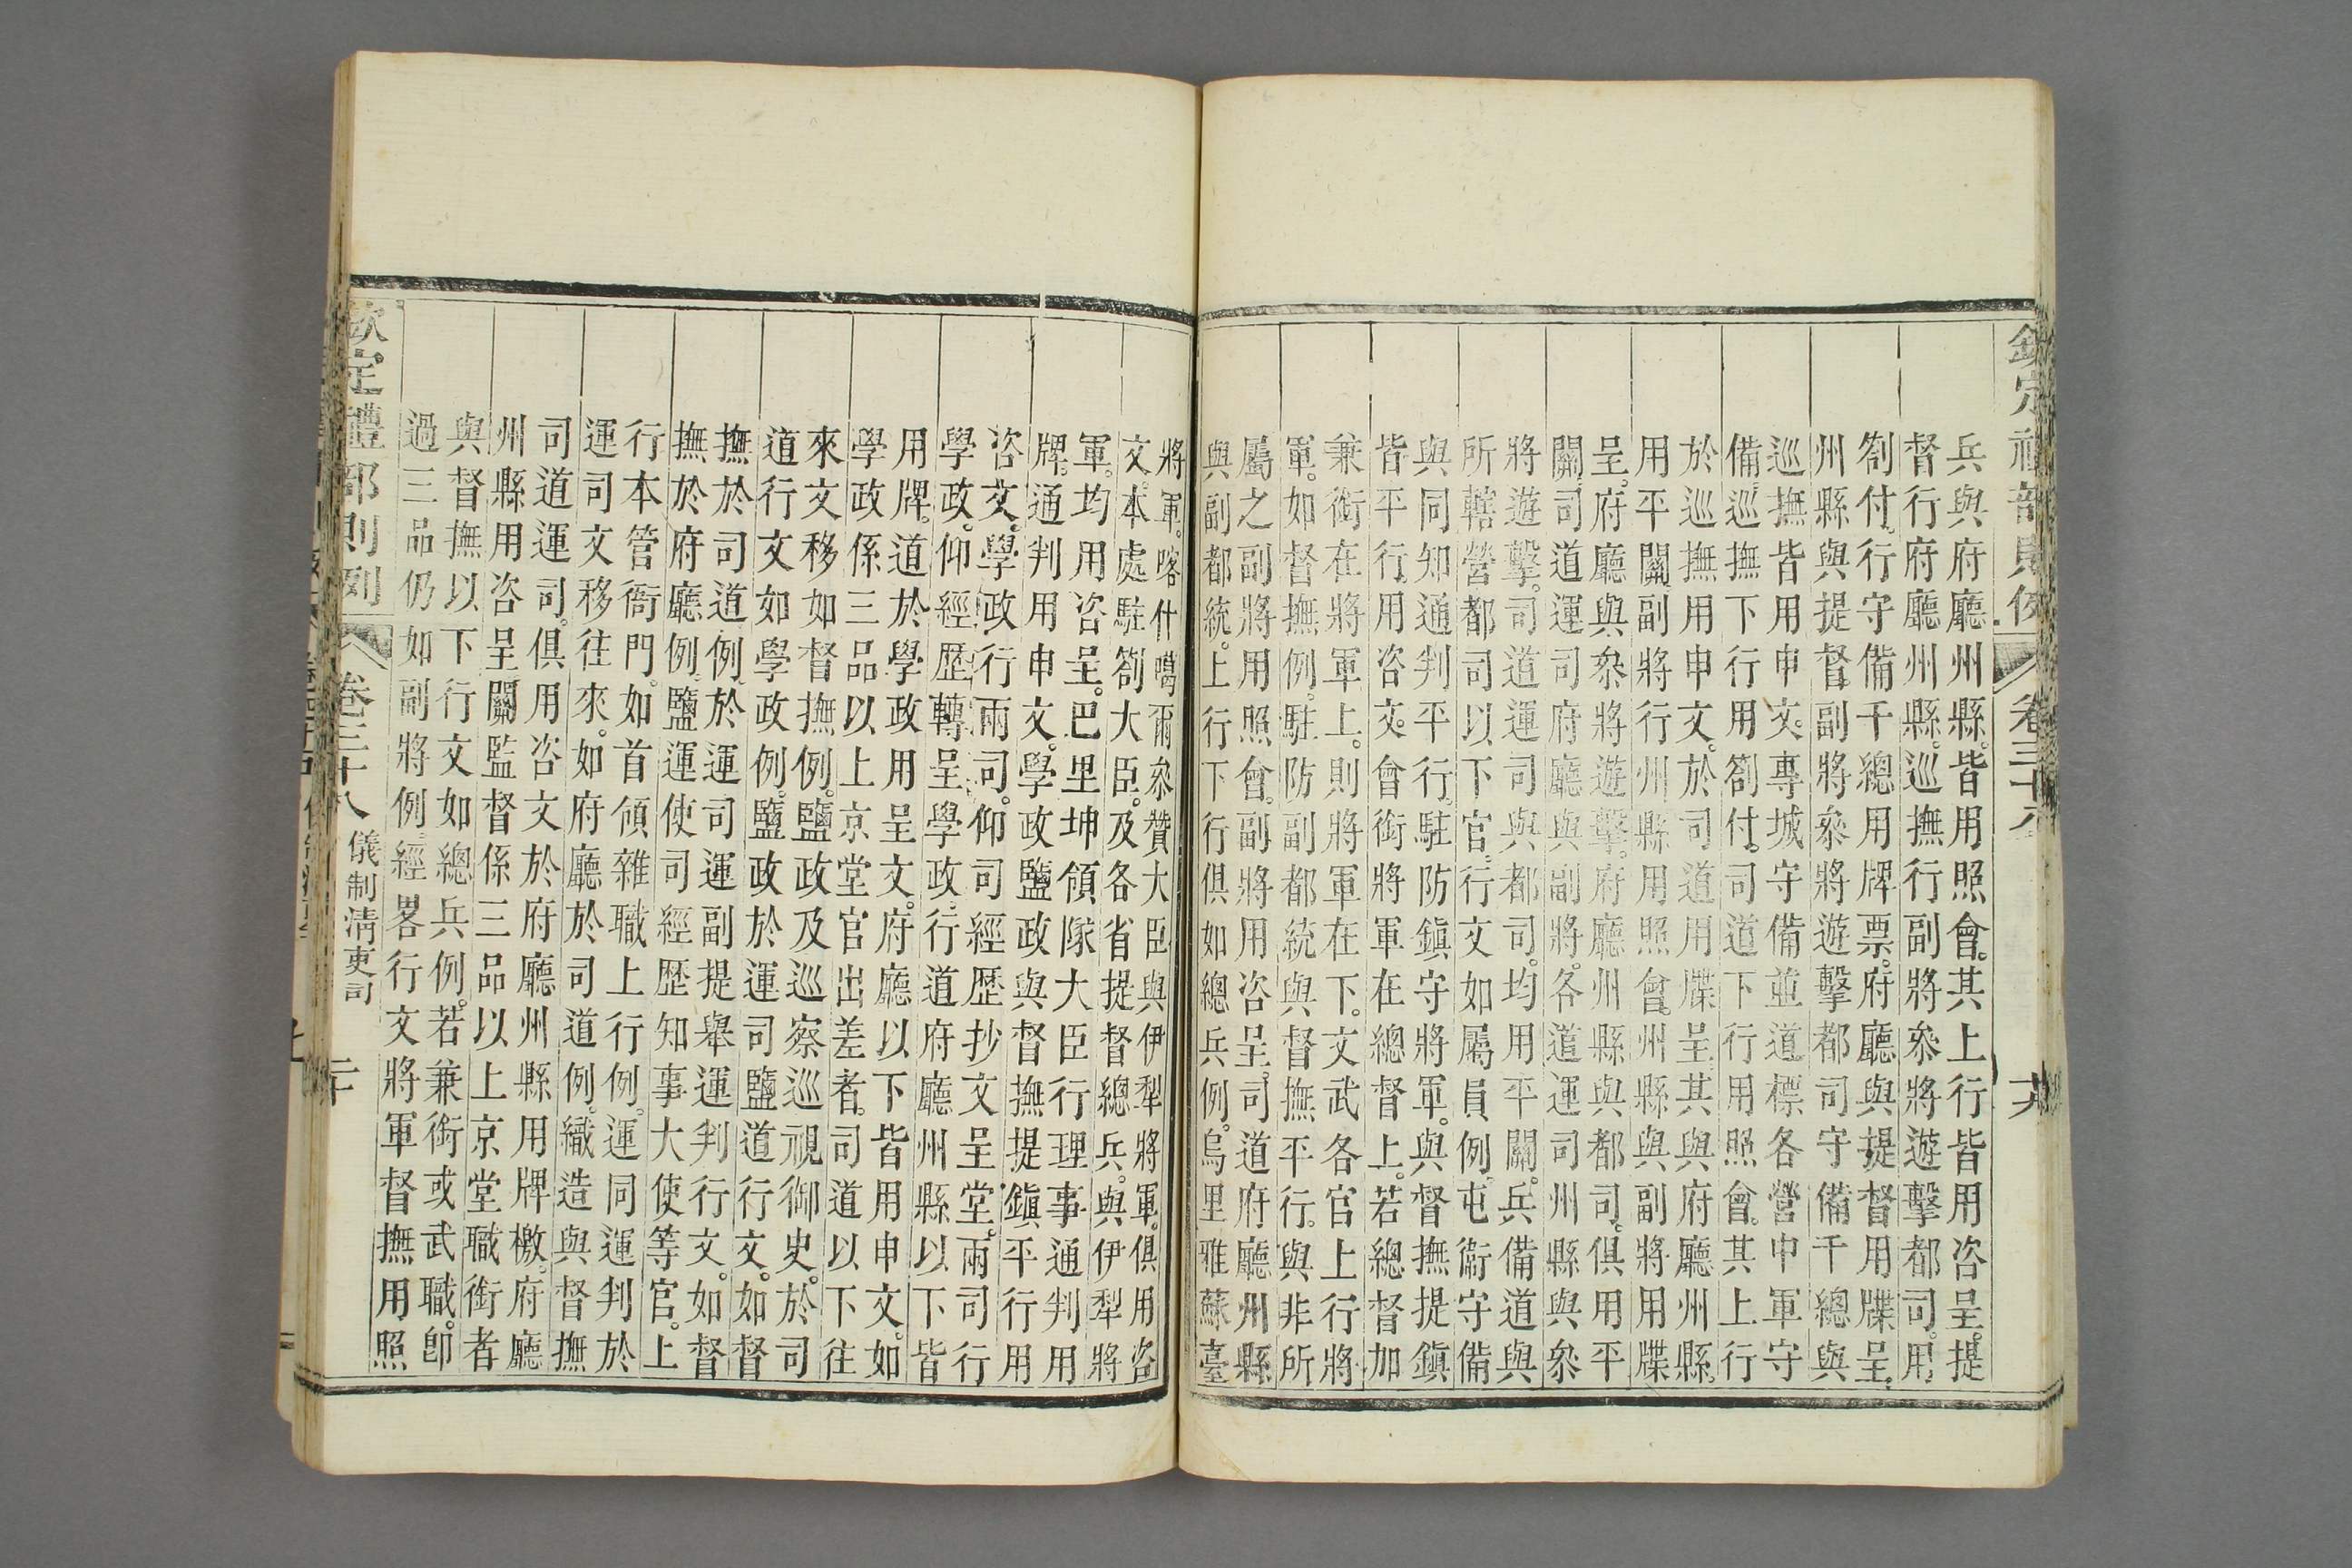 欽定禮部則例 卷三十八
兵與府廳州縣。皆用照會。其上行皆用咨呈。提
督行府廳州縣。巡撫行副將叅將遊擊都司。用
劄付。行守備千總用牌票。府廳與提督用牒呈。
州縣與提督副將叅將遊擊都司守備千總與
巡撫皆用申文。專城守備並道標各營中軍守
備。巡撫下行用劄付。司道下行用照會。其上行
於巡撫用申文。於司道用牒呈其與府廳州縣。
用平關。副將行州縣用照會。州縣與副將用牒
呈。府廳與叅將遊擊。府廳州縣與都司。俱用平
關。司道運司府廳與副將。各道運司州縣與叅
將遊擊。司道運司與都司。均用平關。兵備道與
所轄營都司以下官。行文如屬員例。屯衞守備
與同知通判平行。駐防鎮守將軍。與督撫提鎮
皆平行。用咨文。會銜將軍在總督上。若總督加
兼銜在將軍上。則將軍在下。文武各官上行將
軍。如督撫例。駐防副都統與督撫平行。與非所
屬之副將用照會。副將用咨呈。司道府廳州縣
與副都統。上行下行俱如總兵例。烏里雅蘇臺
將軍。喀什噶爾叅贊大臣與伊犁將軍。俱用咨
文。本處駐劄大臣。及各省提督總兵。與伊犁將
軍。均用咨呈。巴里坤領隊大臣行理事通判用
牌。通判用申文。學政鹽政與督撫提鎮平行用
咨文。學政行兩司。仰司經歷抄文呈堂。兩司行
學政。仰經歷轉呈學政。行道府廳州縣以下皆
用牌。道於學政用呈文。府廳以下皆用申文。如
學政係三品以上京堂官出差者。司道以下往
來文移如督撫例。鹽政及巡察巡視御史。於司
道行文如學政例。鹽政於運司鹽道行文。如督
撫於司道例。於運司運副提舉運判行文。如督
撫於府廳例。鹽運使司經歷知事大使等官。上
行本管衙門。如首領雜職上行例。運同運判於
運司文移往來。如府廳於司道例。織造與督撫
司道運司。俱用咨文於府廳州縣用牌檄。府廳
州縣用咨呈關監督係三品以上京堂職銜者
與督撫以下行文如總兵例。若兼銜或武職。卽
過三品仍如副將例。經畧行文將軍督撫用照
欽定禮部則例 卷三十八 儀制清吏司 二十